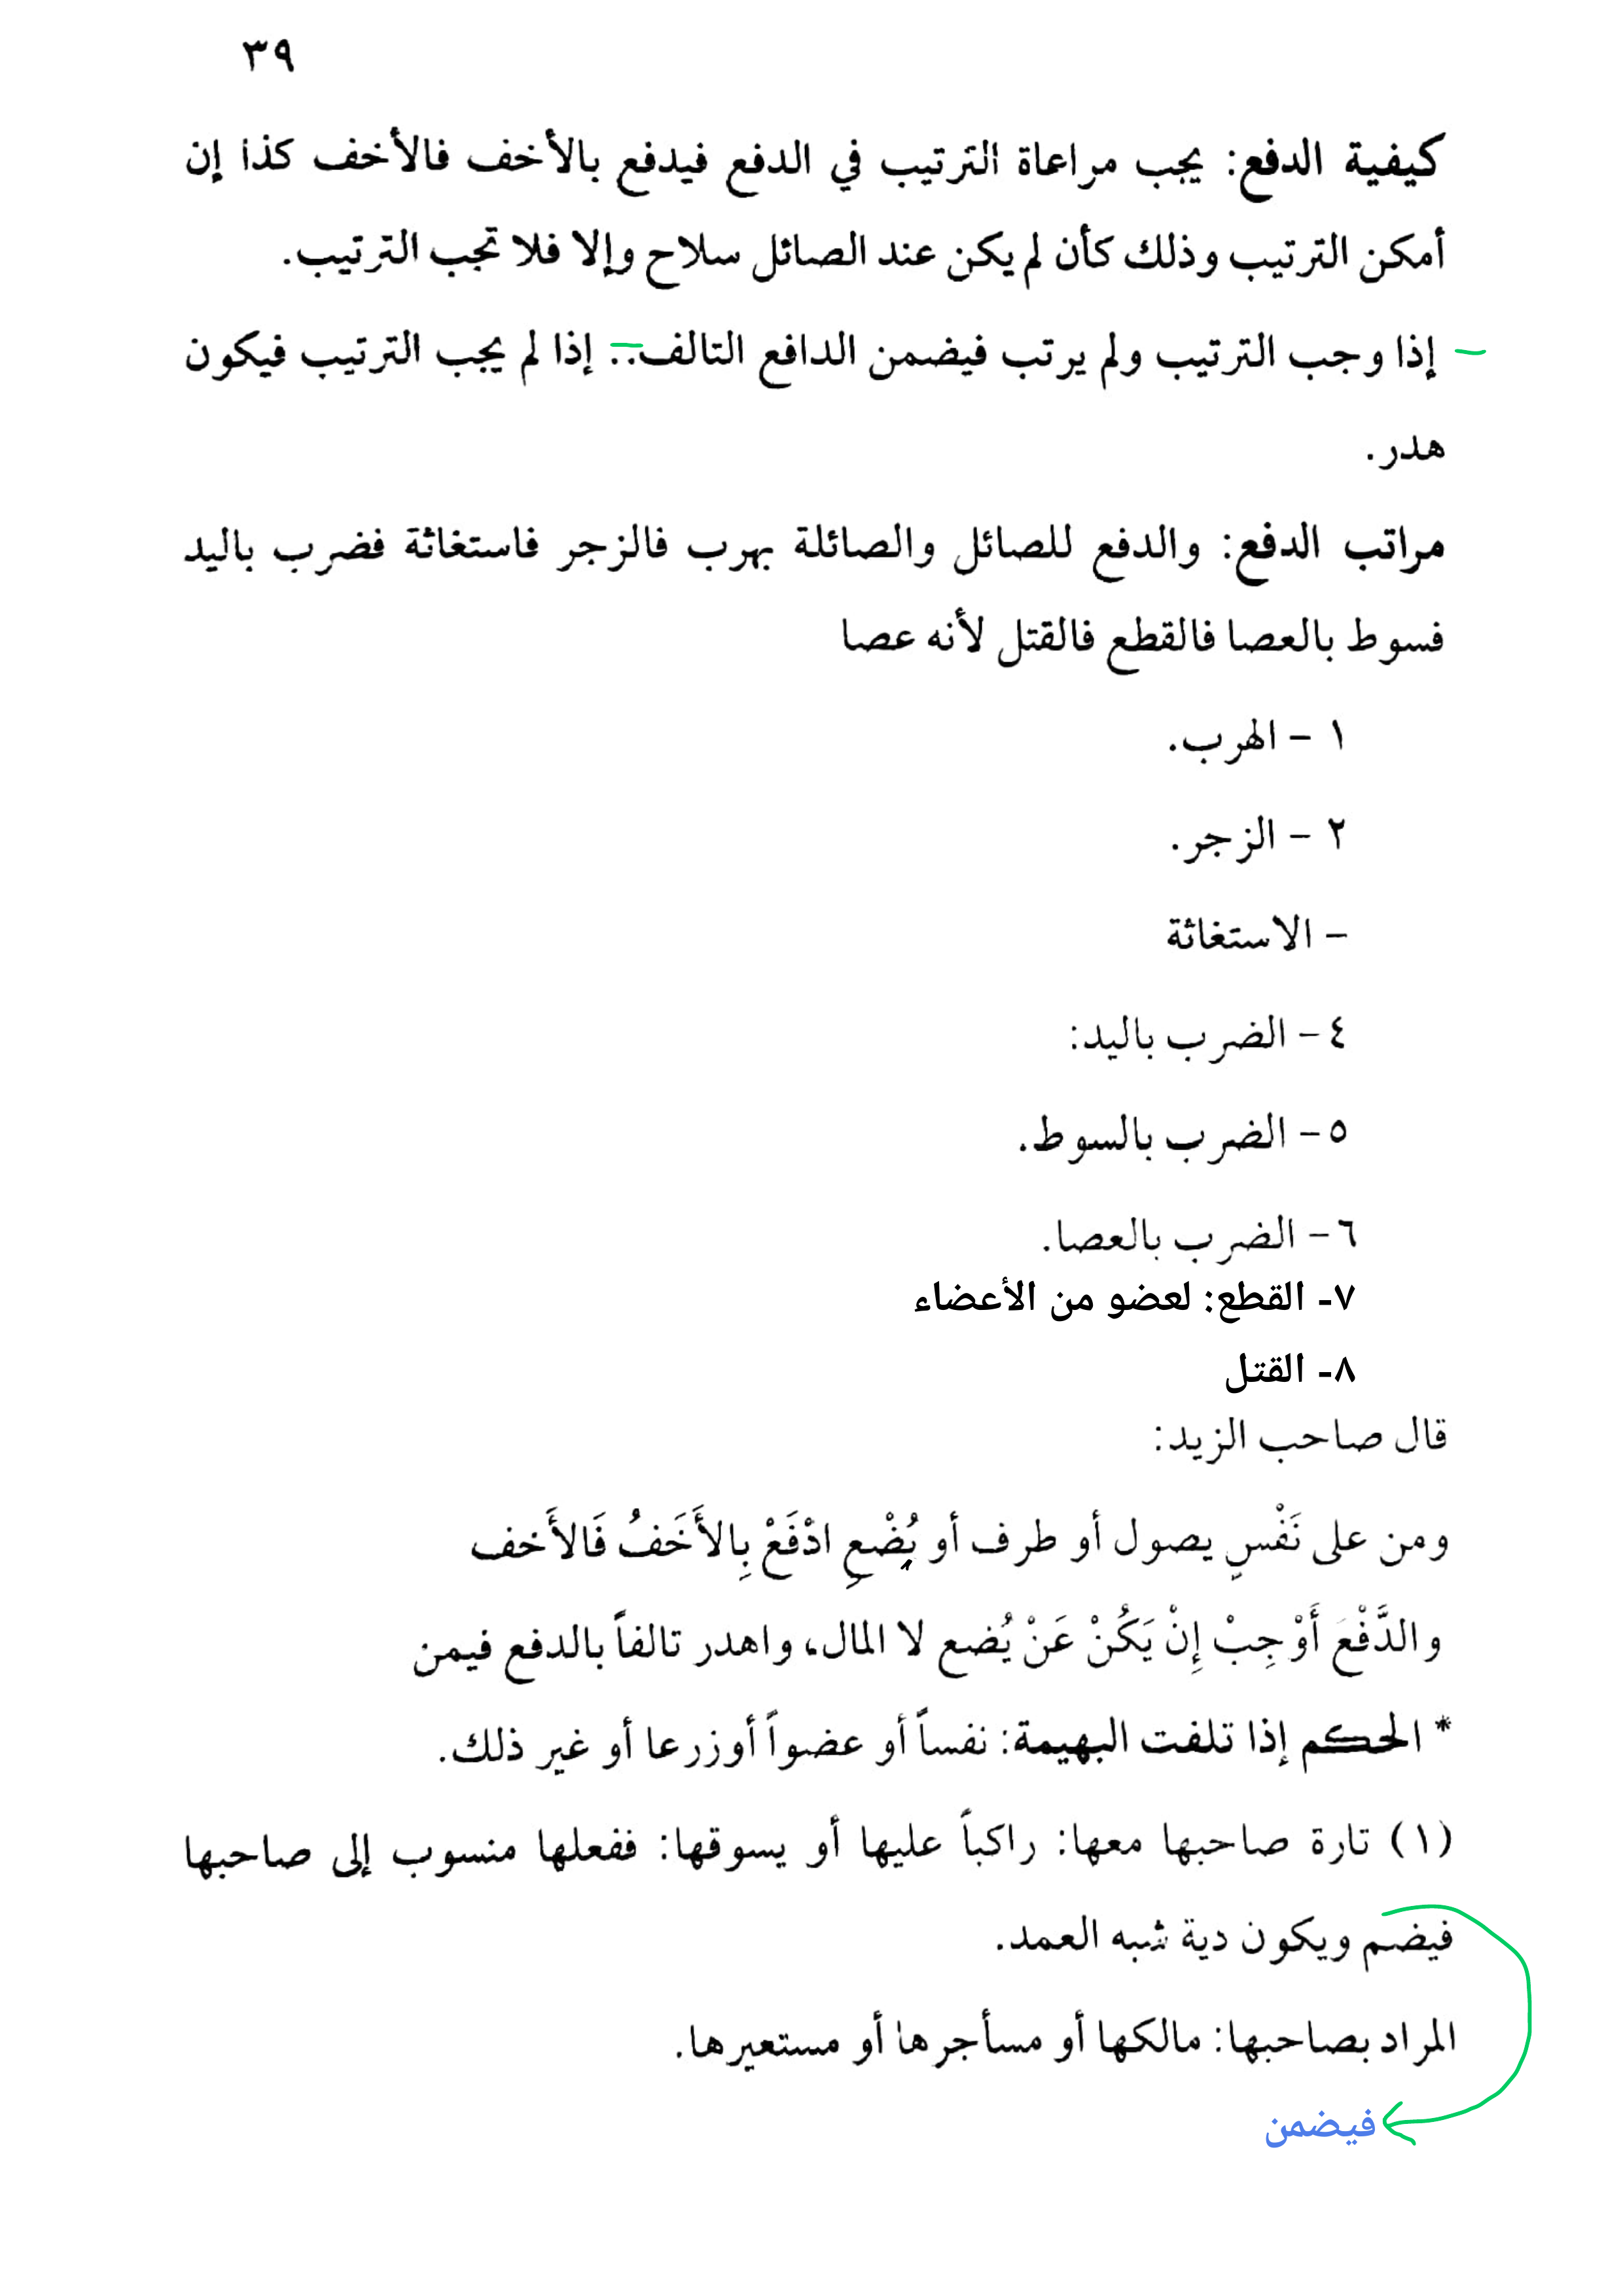 ٣٩
كيفية الدفع: يجب مراعاة الترتيب في الدفع فيدفع بالأخف فالأخف كذا إن
أمكن الترتيب وذلك كأن لم يكن عند الصائل سلاح وإلا فلا تجب الترتيب.
– إذا وجب الترتيب ولم يرتب فيضمن الدافع التالف.. إذا لم يجب الترتيب فيكون
هدر.
مراتب الدفع: والدفع للصائل والصائلة بهرب فالزجر فاستغاثة فضرب باليد
فسوط بالعصا فالقطع فالقتل لأنه عصا
١ – الهرب.
٢ – الزجر.
– الاستغاثة
٤ – الضرب باليد:
٥ – الضرب بالسوط.
٦ – الضرب بالعصا.
٧- القطع: لعضو من الأعضاء
٨- القتل
قال صاحب الزيد:
ومن على نَفْسٍ يصول أو طرف أو بُضْعٍ ادْفَعْ بِالأَخَفُ فَالأَخف
والدَّفْعَ أَوْجِبْ إِنْ يَكُنْ عَنْ بُضع لا المال، واهدر تالفاً بالدفع فيمن
* الحكم إذا تلفت البهيمة: نفساً أو عضواً أوزرعا أو غير ذلك.
(١) تارة صاحبها معها: راكباً عليها أو يسوقها: ففعلها منسوب إلى صاحبها
فيضم ويكون دية شبه العمد.
المراد بصاحبها: مالكها أو مسأجرها أو مستعيرها.
فيضمن